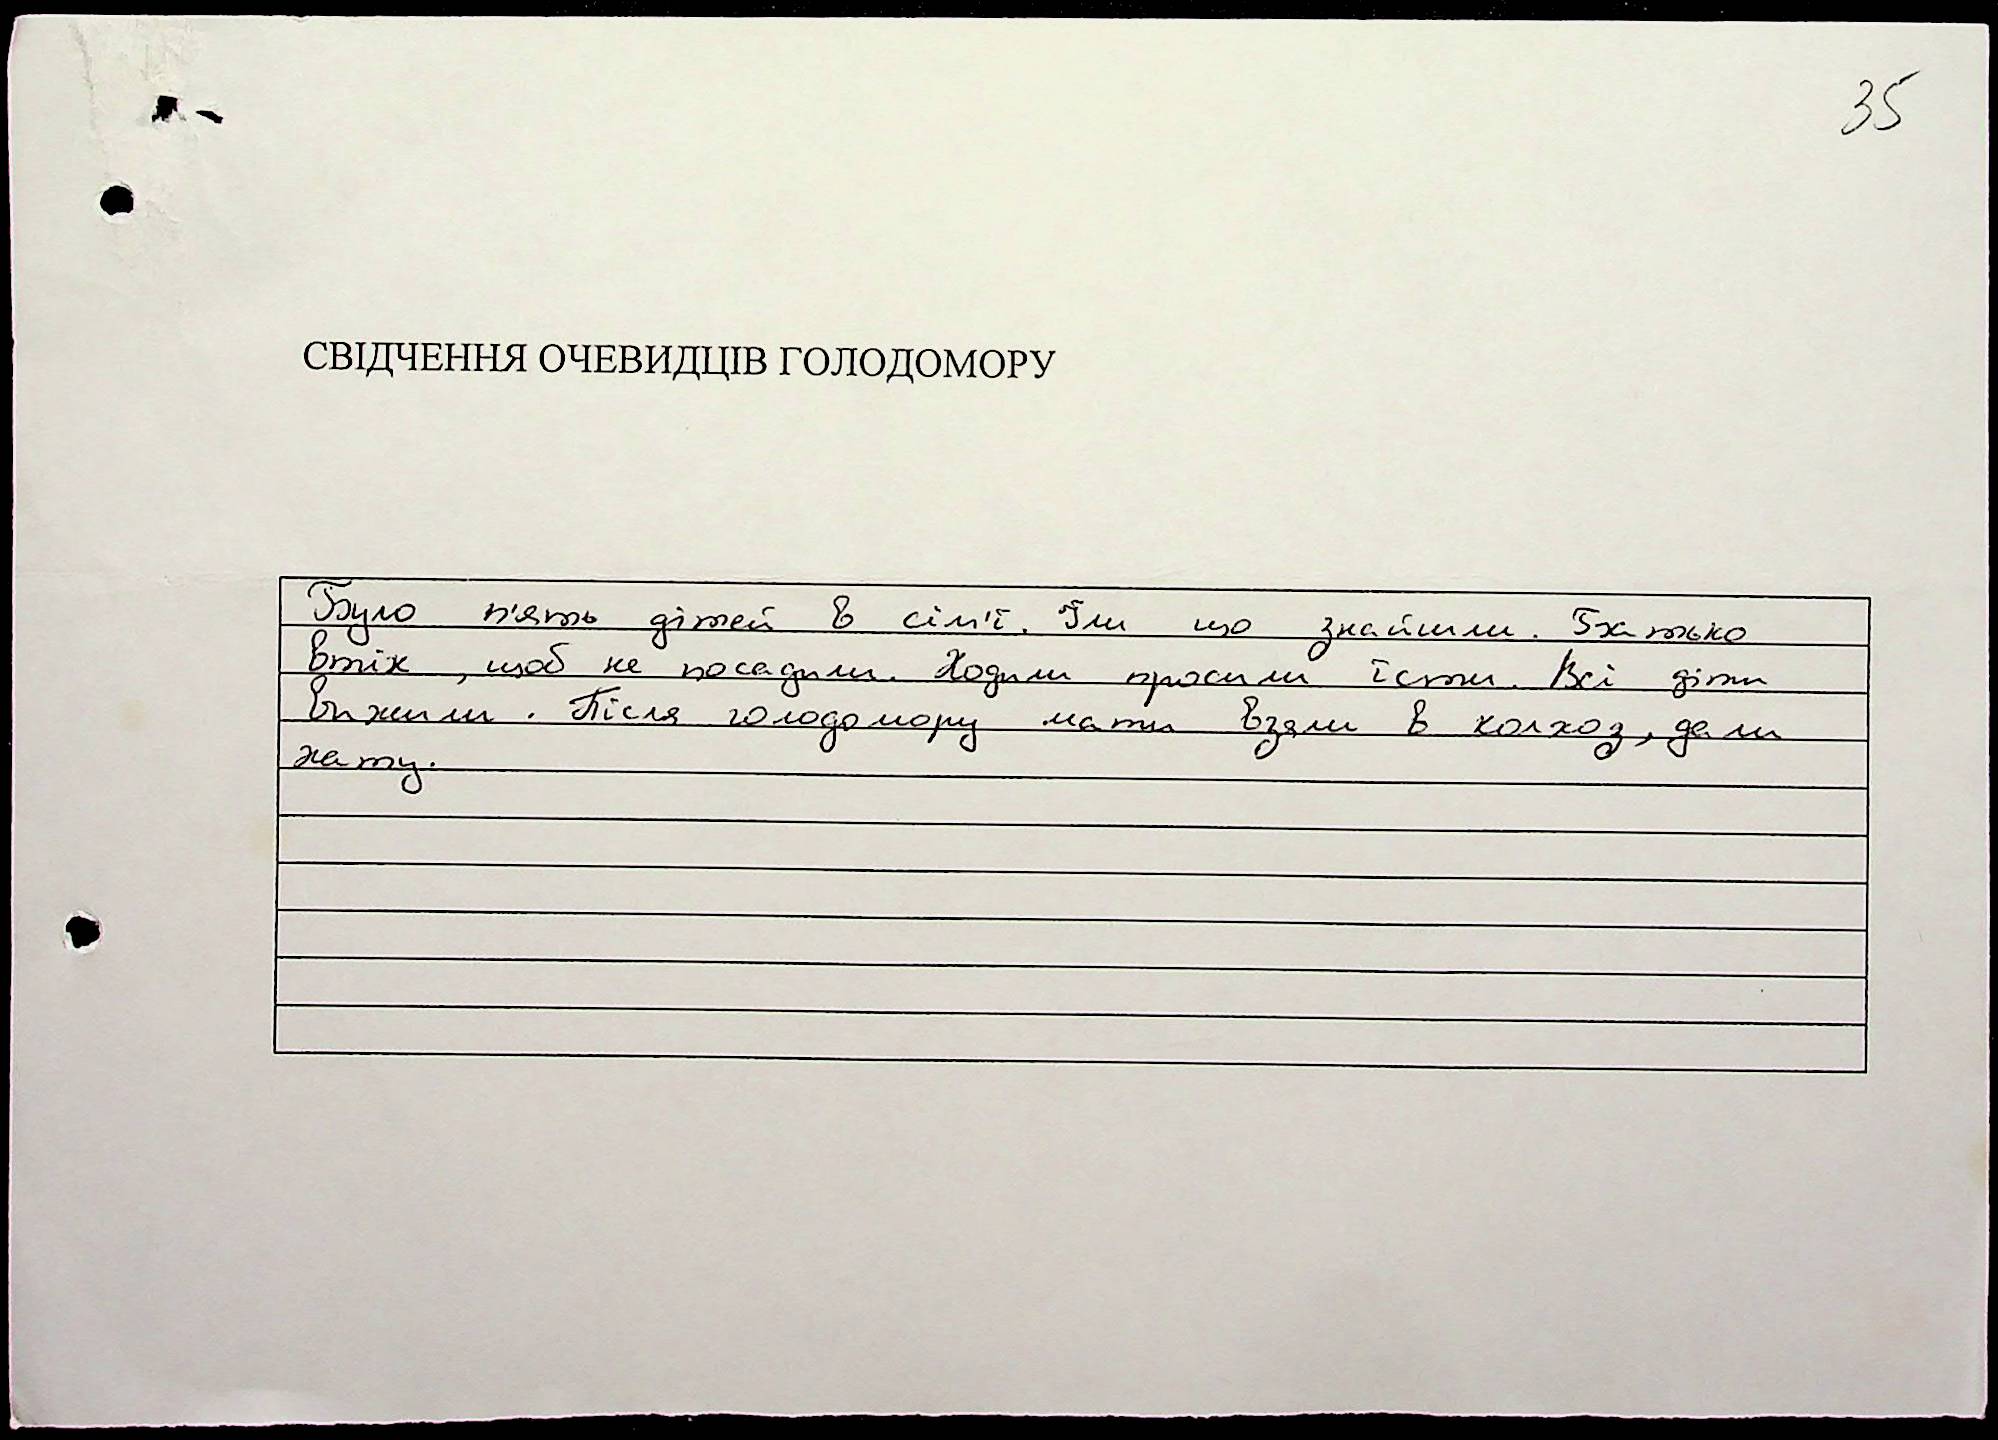 35
СВІДЧЕННЯ ОЧЕВИДЦІВ ГОЛОДОМОРУ
Було п'ять дітей в сім'ї. Їли що знайшли. Батько
втік, щоб не посадили. Ходили просили їсти. Всі діти
вижили. Після голодомору мати взяли в колхоз, дали
хату.